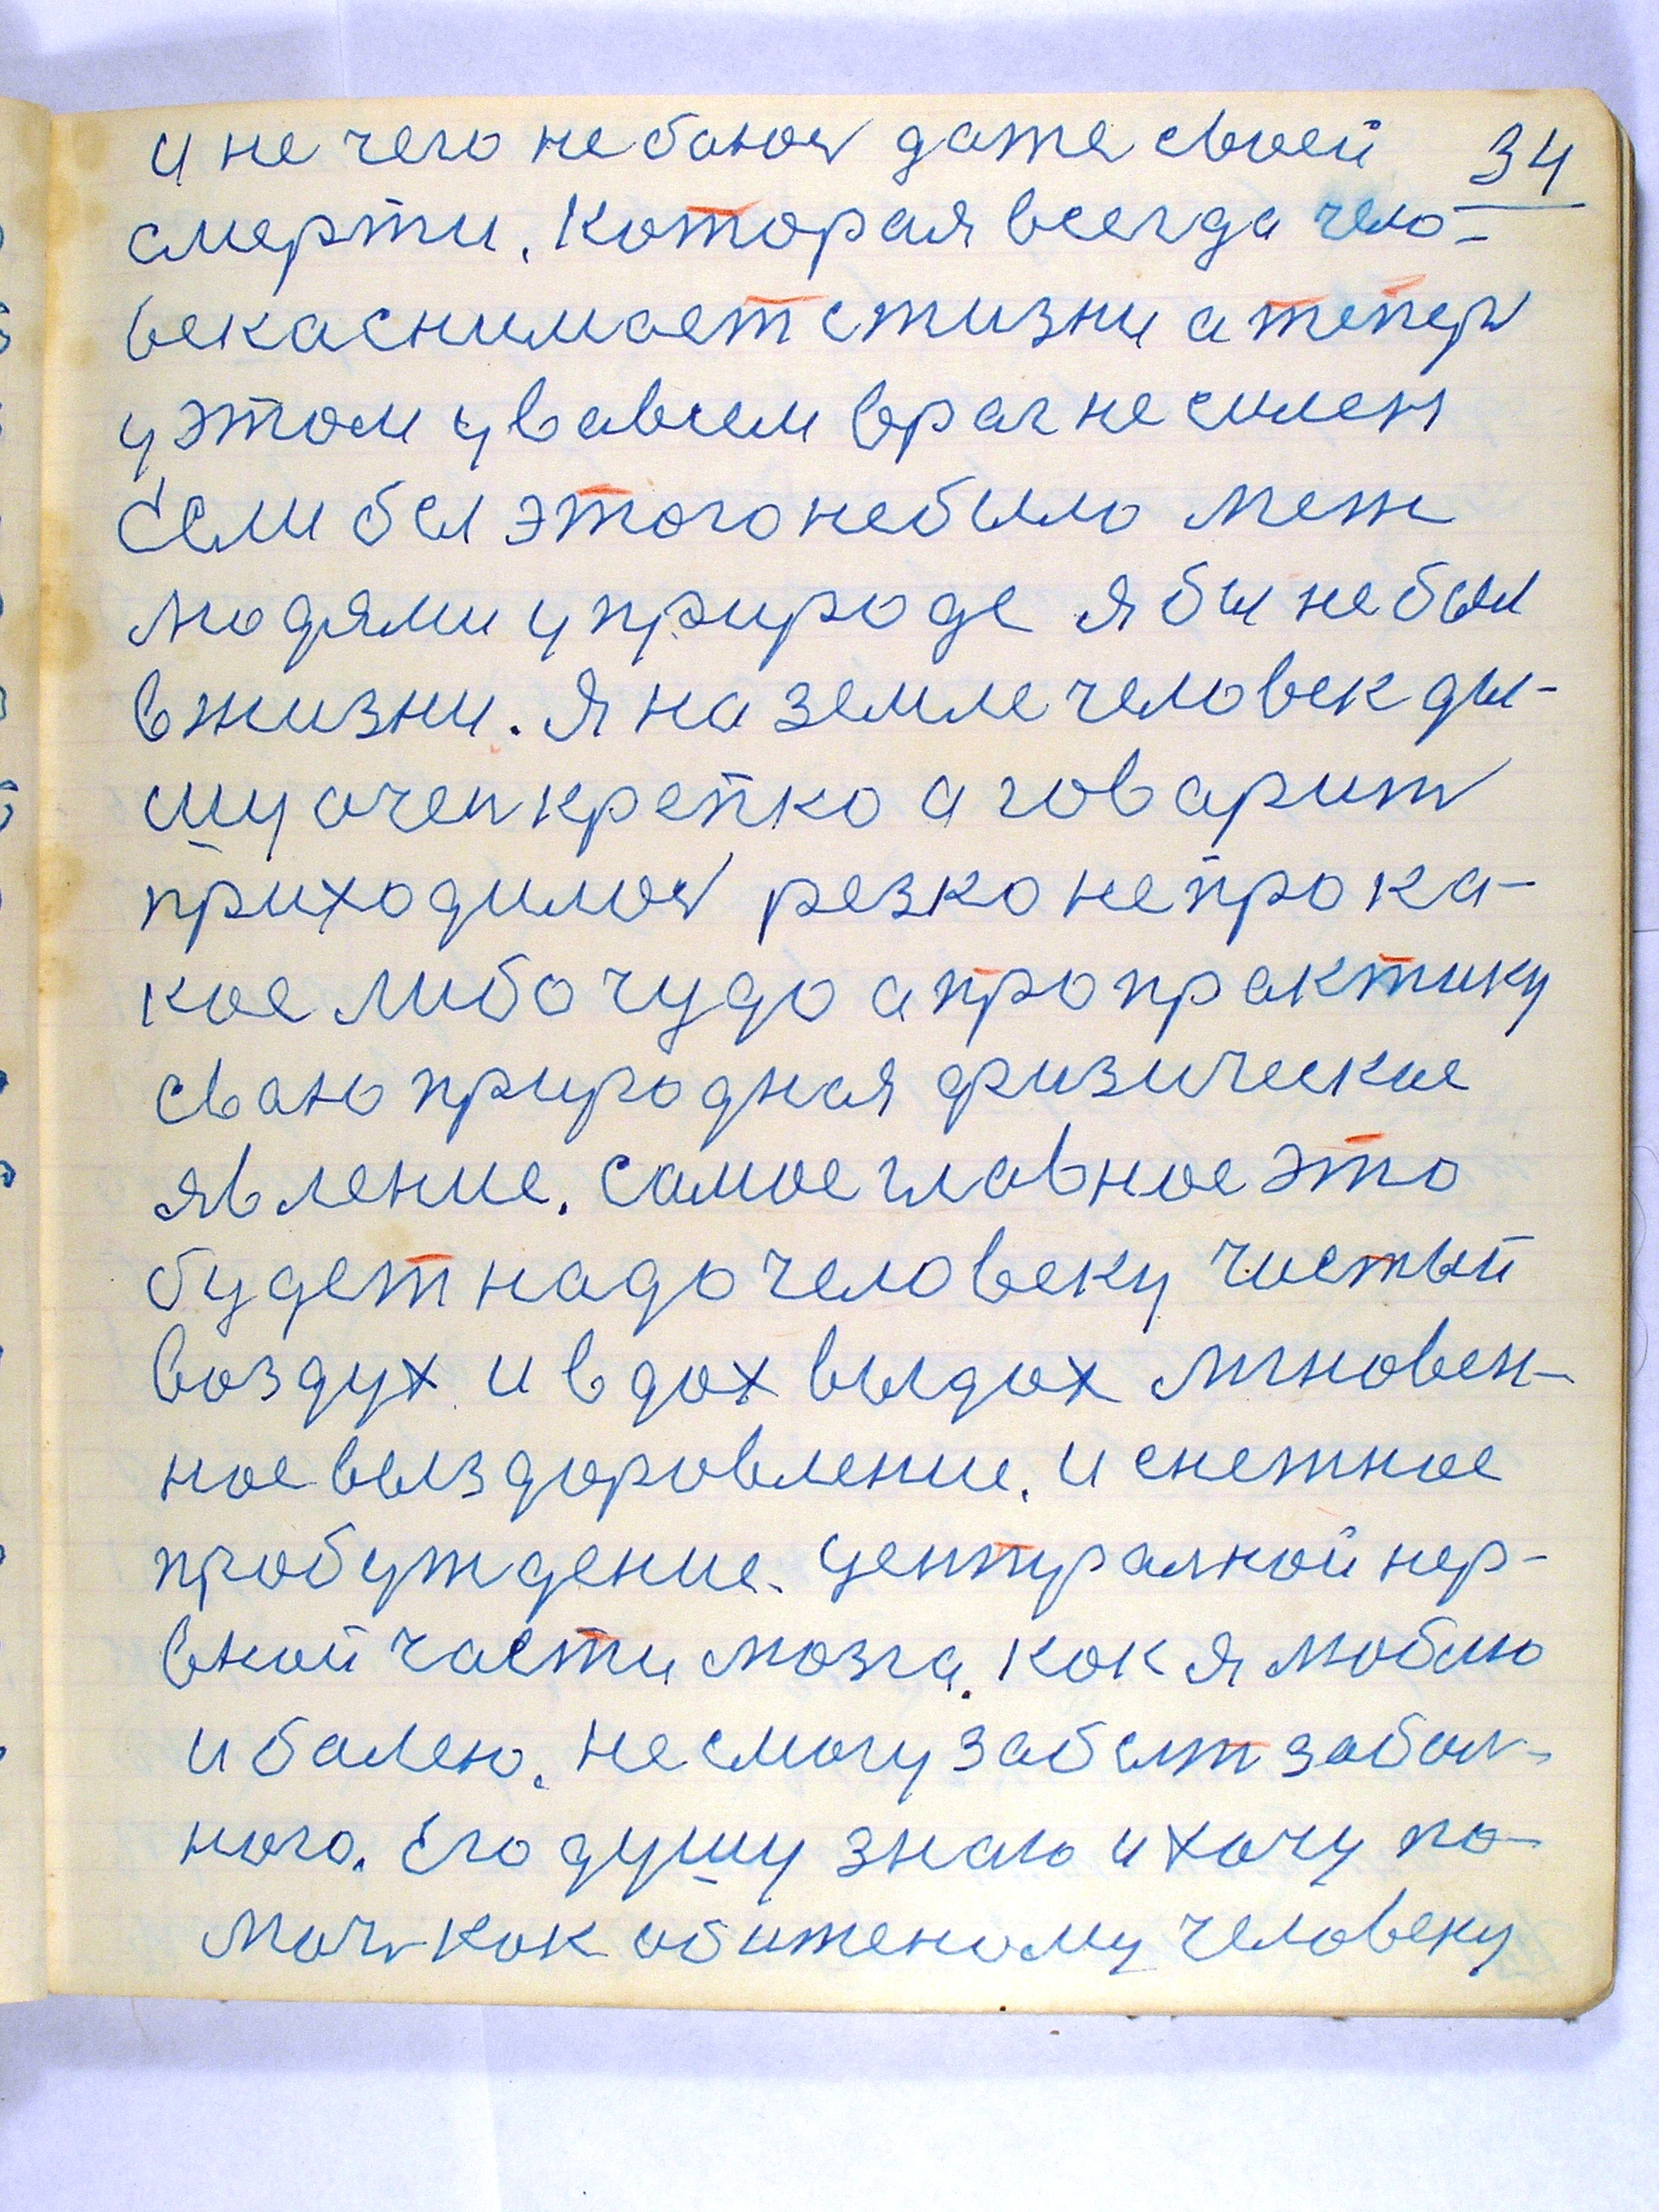 и не чего не боюсь даже своей 34
смерти. Которая всегда чело-
века снимает с жизни а теперь
у этом у вавсем враг не силен
Если бы этого не было меж
людями у природе я бы не был
в жизни. Я на земле человек ды-
шу очен крепко а говарить
приходилось резко не про ка-
кое либо чудо а про практику
сваю природная физическое
явление. Самое главное это
будет надо человеку чистый
воздух и вдох выдох мгновен-
ное выздоровление. и снежное
пробуждение. Централной нер-
вной части мозга. как я люблю
и балею. не смогу забыть забол-
ного. Его душу знаю и хочу по-
мочь как обиженому человеку